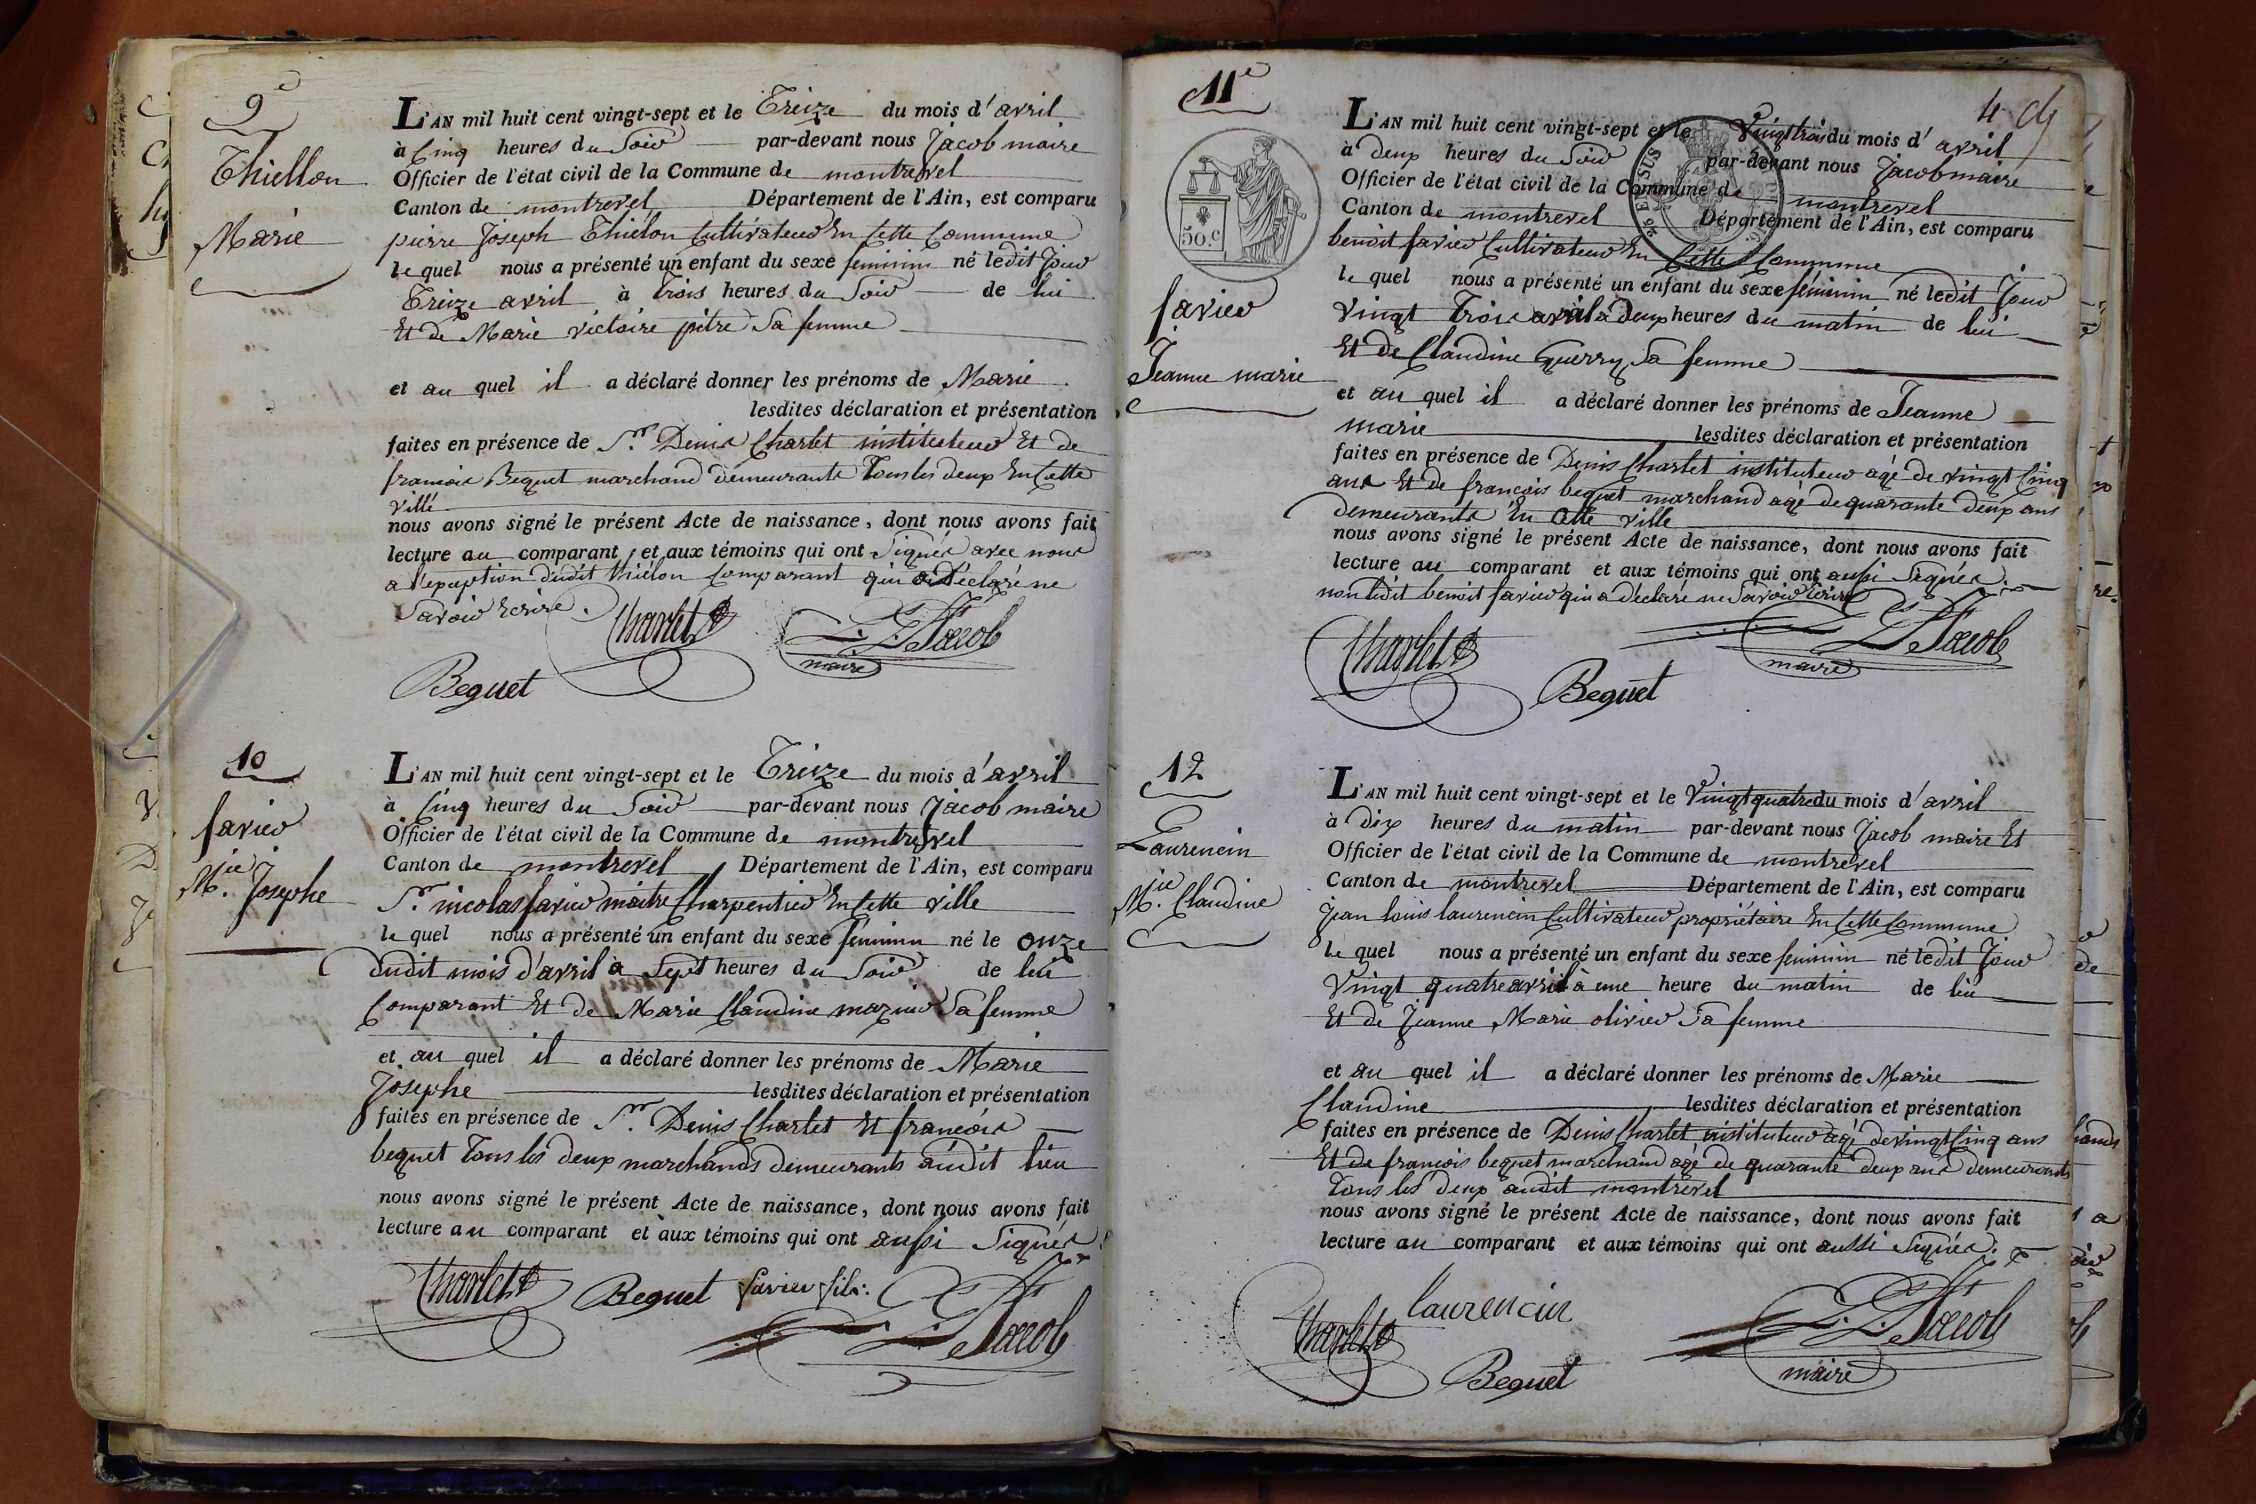 9e
Thiellon
Marie
L'AN mil huit cent vingt-sept et le Treize du mois d'avril
à Cinq heures du Soir par-devant nous Jacob maire
Officier de l'état civil de la Commune de montrevel
Canton de montrevel Département de l'Ain, est comparu
pierre Joseph Thiélon Cultivateur En Cette Commune
le quel nous a présenté un enfant du sexe feminin né ledit Jour
Treize avril à Trois heures du Soir de lui
Et de Marie victoire pitre Sa femme
et au quel il a déclaré donner les prénoms de Marie
lesdites déclaration et présentation
faites en présence de Sr. Denis Charlet instituteur Et de
francois Bequet marchand demeurants Tous les deux En Cette
ville
nous avons signé le présent Acte de naissance, dont nous avons fait
lecture au comparant et aux témoins qui ont Signés avec nous
a l'exeption dudit thiélon Comparant qui a Déclaré ne
Savoir Ecrire.
Charlet
Jacob
maire
Bequet
10
favier
Mie. Josephe
L'AN mil huit cent vingt-sept et le Treize du mois d'avril
à Cinq heures du Soir par-devant nous Jacob maire
Officier de l'état civil de la Commune de montrevel
Canton de montrevel Département de l'Ain, est comparu
Sr. nicolas favier maitre Charpentier En Cette ville
le quel nous a présenté un enfant du sexe féminin né le onze
dudit mois d'avril à Sept heures du Soir de lui
Comparant Et de Marie Claudine mazuir Sa femme
et au quel il a déclaré donner les prénoms de Marie
Josephe lesdites déclaration et présentation
faites en présence de Sr. Denis Charlet Et francois
bequet Tous les deux marchands demeurants audit lieu
nous avons signé le présent Acte de naissance, dont nous avons fait
lecture au comparant et aux témoins qui ont aussi Signés
Charlet Bequet favier fils.
Jacob
11e
4
50.c
EN SUS
favier
Jeanne marie
L'AN mil huit cent vingt-sept et le Vingt trois du mois d'avril
à deux heures du Soir par-devant nous Jacob maire
Officier de l'état civil de la Commune de montrevel
Canton de montrevel Département de l'Ain, est comparu
benoit favier Cultivateur En Cette Commune
le quel nous a présenté un enfant du sexe féminin né ledit Jour
vingt Trois avril à Deux heures du matin de lui
Et de Claudine Guerry Sa femme
et au quel il a déclaré donner les prénoms de Jeanne
marie lesdites déclaration et présentation
faites en présence de Denis Charlet instituteur agé de vingt Cinq
ans Et de francois bequet marchand agé de quarante deux ans
demeurants En Cette ville
nous avons signé le présent Acte de naissance, dont nous avons fait
lecture au comparant et aux témoins qui ont aussi Signés.
non ledit benoit favier qui a declaré ne Savoir Ecrire
Charlet
Jacob
maire
Bequet
12
Laurencin
Mie. Claudine
L'AN mil huit cent vingt-sept et le Vingt quatre du mois d'avril
à Dix heures du matin par-devant nous Jacob maire Et
Officier de l'état civil de la Commune de montrevel
Canton de montrevel Département de l'Ain, est comparu
Jean louis laurencin Cultivateur propriétaire En Cette Commune
le quel nous a présenté un enfant du sexe feminin né ledit Jour
Vingt quatre avril à une heure du matin de lui
Et de Jeanne Marie olivier Sa femme
et au quel il a déclaré donner les prénoms de Marie
Claudine lesdites déclaration et présentation
faites en présence de Denis Charlet instituteur agé de vingt Cinq ans
Et de francois bequet marchand agé de quarante deux ans demeurants
Tous les deux audit montrevel
nous avons signé le présent Acte de naissance, dont nous avons fait
lecture au comparant et aux témoins qui ont aussi Signés.
laurencin
Charlet
Jacob
maire
Bequet